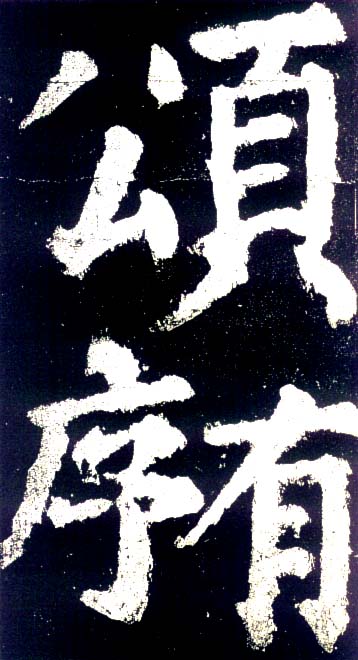 頌
有序